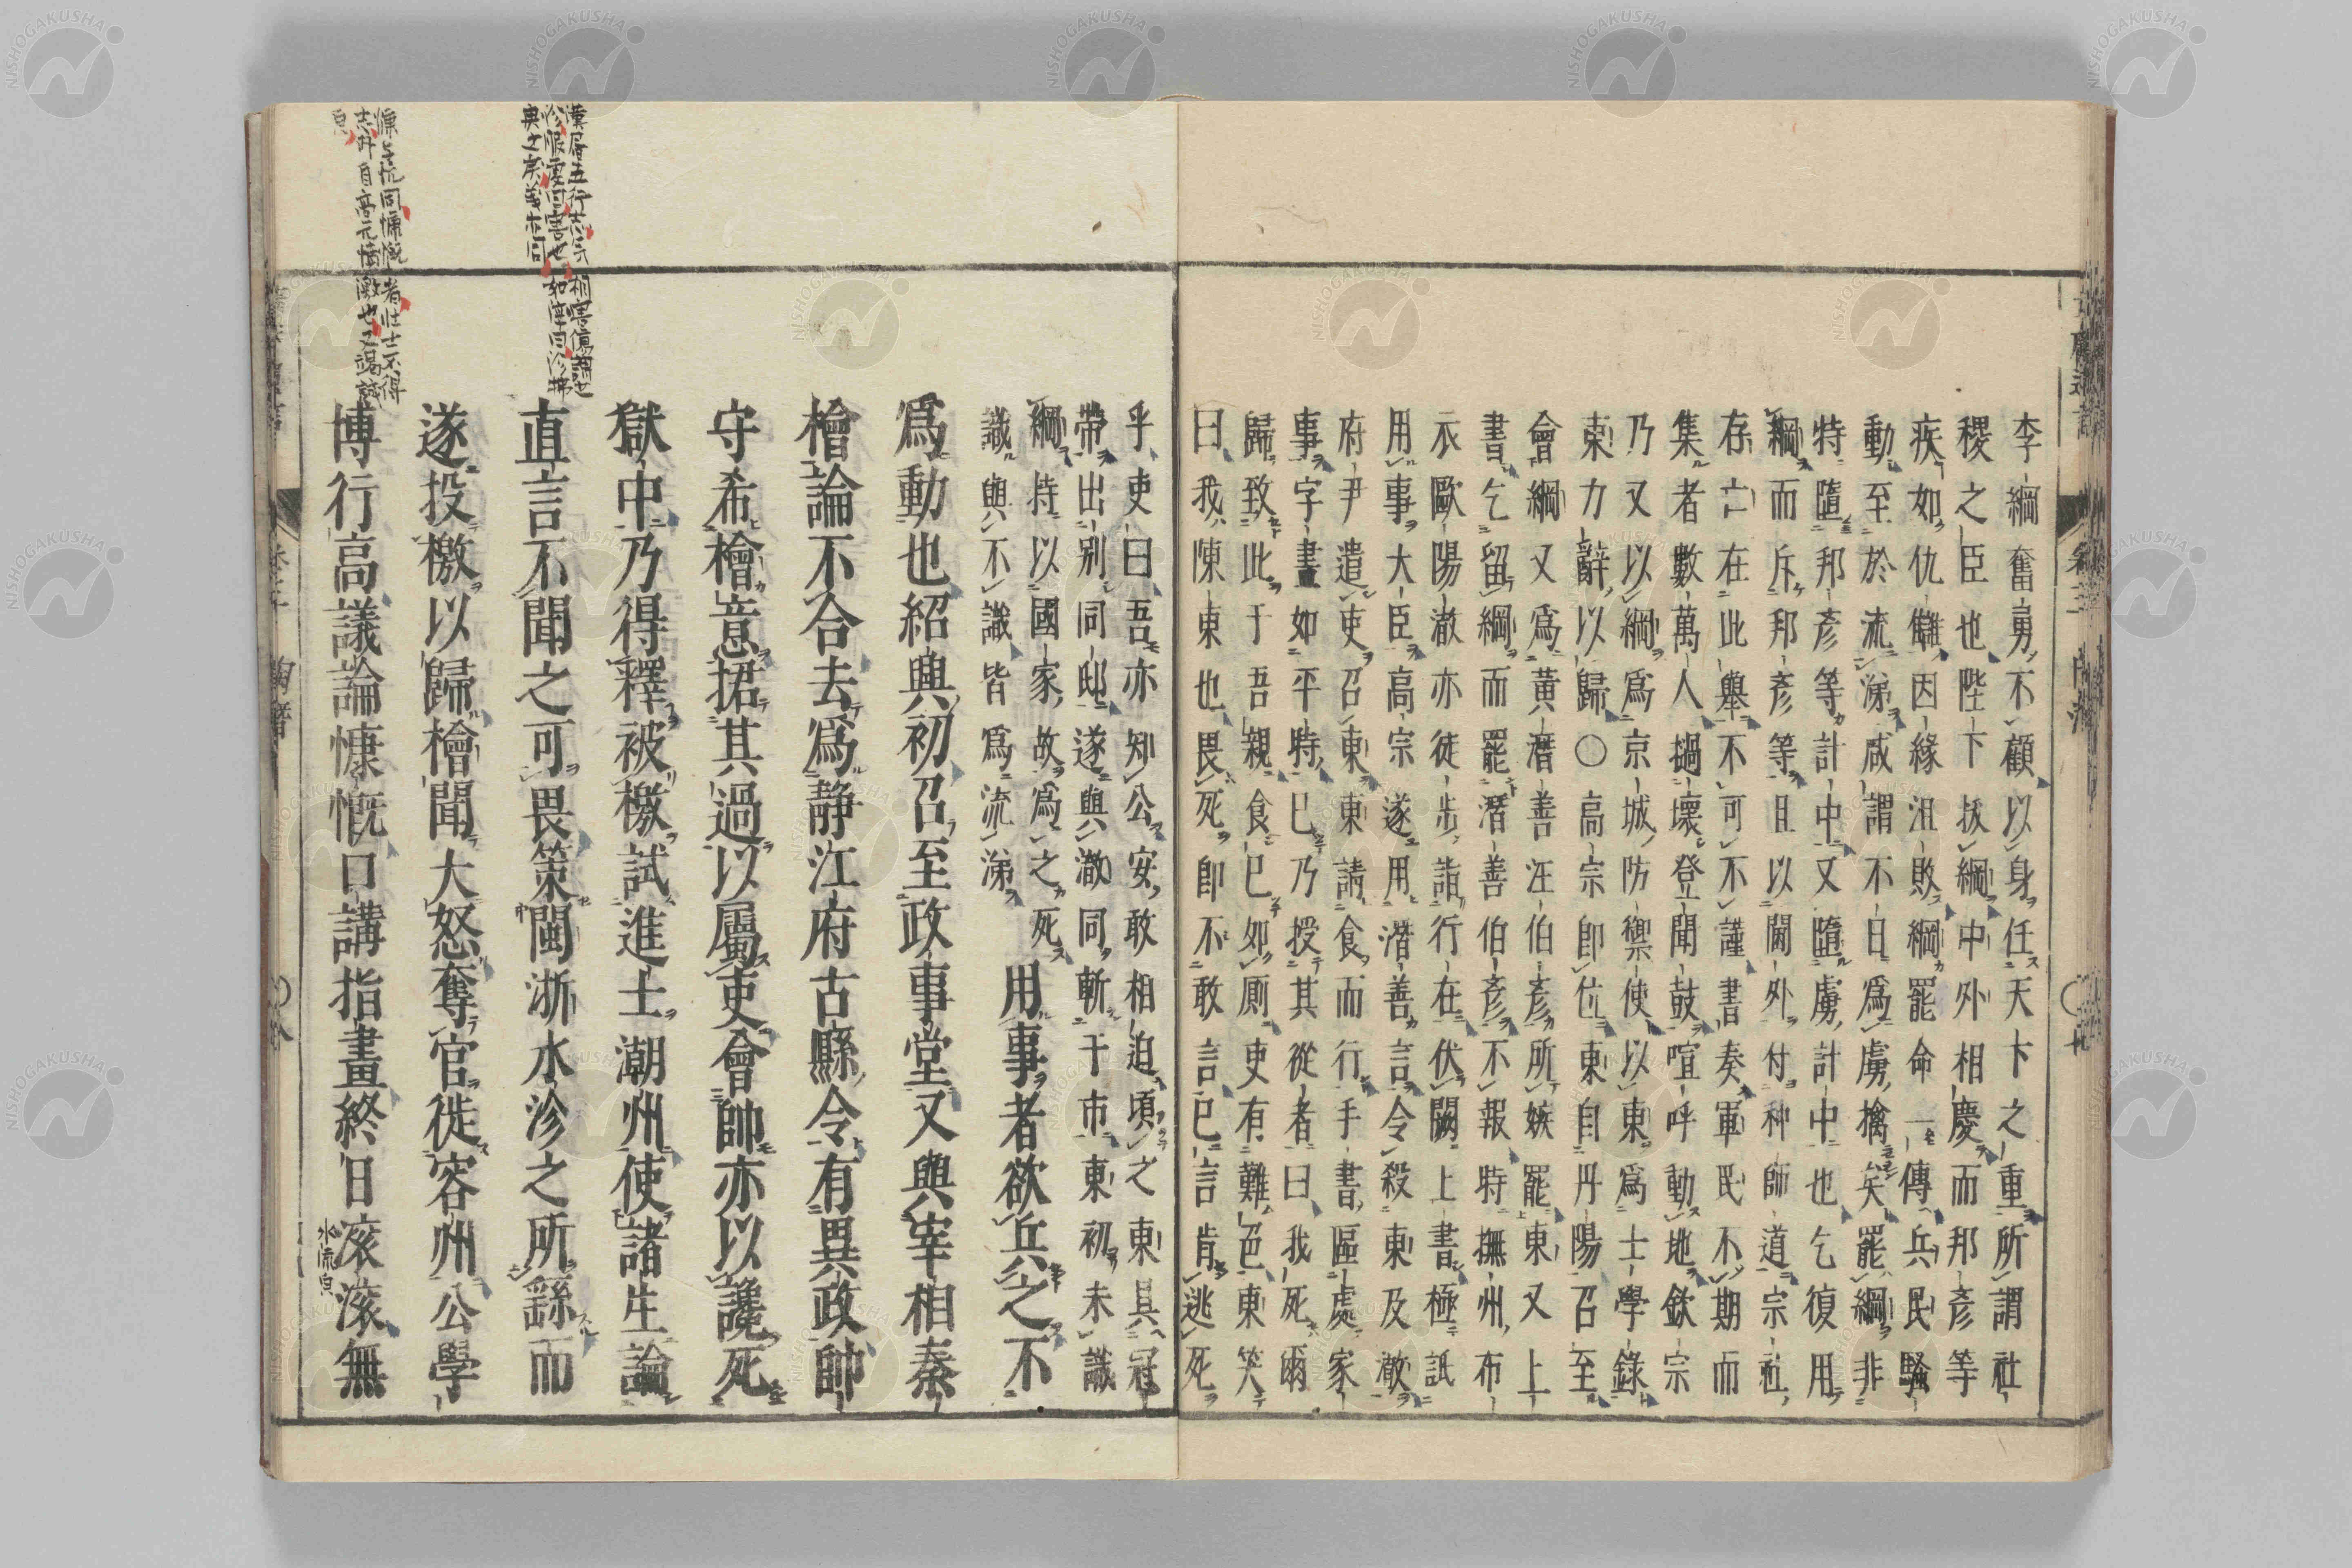 李綱奮勇不顧以身任天下之重所謂社
稷之臣也陛下拔綱中外相慶而邦彥等
疾如仇讎因緣沮敗綱罷命一傳兵民騷
動至於流涕咸謂不日爲虜擒矣罷綱非
特墮邦彥等計中又墮虜計中也乞復用
綱而斥邦彥等且以閫外付种師道宗社
存亡在此舉不可不謹書奏軍民不期而
集者數萬人撾壞登聞鼓喧呼動地欽宗
乃又以綱爲京城防禦使以東爲士學錄
東力辭以歸〇高宗即位東自丹陽召至
會綱又爲黃潛善汪伯彥所嫉罷東又上
書乞留綱而罷潛善伯彥不報特撫州布
衣歐陽澈亦徒步詣行在伏闕上書極詆
用事大臣高宗遂用潛善言令殺東及澈
府尹遣吏召東東請食而行手書區處家
事字畫如平時已乃授其從者曰我死爾
歸致此于吾親食已如厠吏有難色東笑
曰我陳東也畏死即不敢言已言肯逃死
乎吏曰吾亦知公安敢相迫頃之東具冠
帶出別同邸遂與澈同斬于市東初未識
綱特以國家故爲之死
識與不識皆爲流涕
用事者欲兵之不
爲動也紹興初召至政事堂又與宰相秦
檜論不合去爲静江府古縣令有異政帥
守希檜意捃其過以屬吏會帥亦以讒死
獄中乃得釋被檄試進士潮州使諸生論
直言不聞之可畏策閩浙水沴之所繇而
遂投檄以歸檜聞大怒奪官徙容州公學
博行高議論慷慨口講指畫終日滚滚無
水流皃
卷三
NISHOGAKUSHA